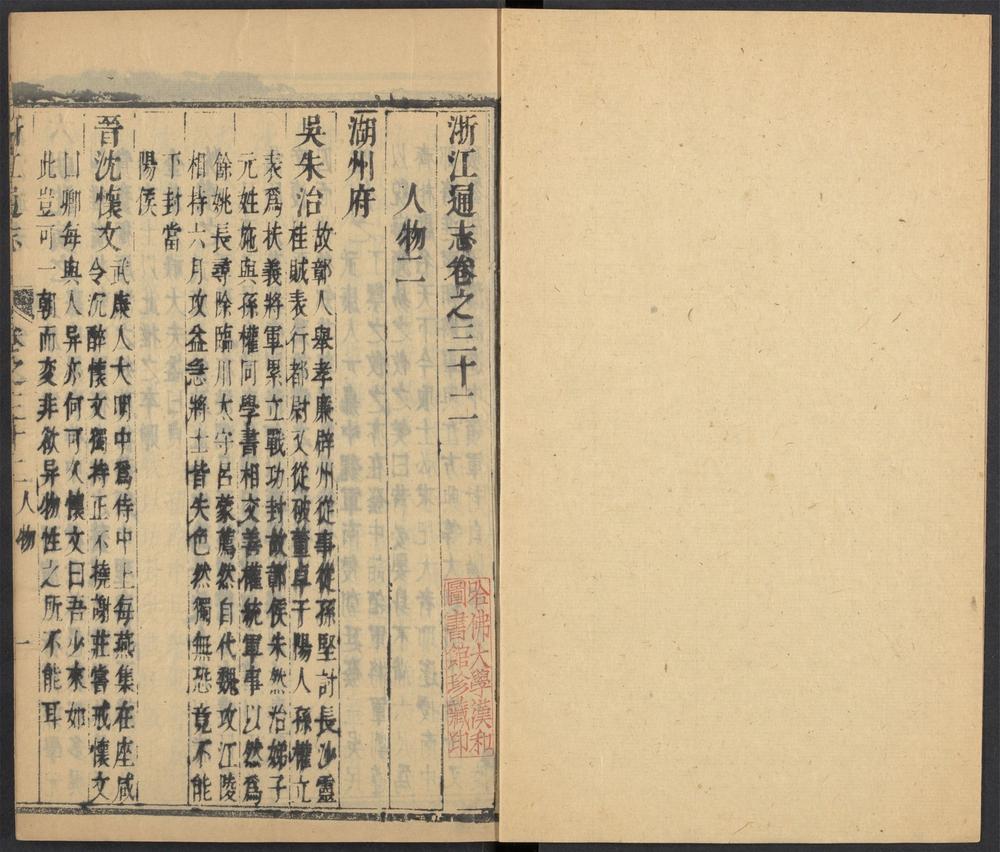 浙江通志卷之三十二
人物二
湖州府
吳朱治故鄣人舉孝廉辟州從事從孫堅討長沙靈
桂賊表行都尉又從破董卓于陽人孫權立
表爲扶義將軍累立戰功封故鄣侯朱然治姊子
元姓施與孫權同學書相交善權統軍事以然爲
餘姚長尋除臨川太守呂蒙薦然自代魏攻江陵
相持六月攻益急將士皆失色然獨無恐竟不能
下封當
陽侯
晉沈懷文武康人大明中爲侍中上每燕集在座咸
令沉醉懷文獨持正不撓謝莊嘗戒懷文
曰卿每與人异亦何可久懷文曰吾少來如
此豈可一朝而变非欲异物性之所不能耳
浙江通志
卷之三十二人物
一
哈佛大學漢和
圖書館珍藏印